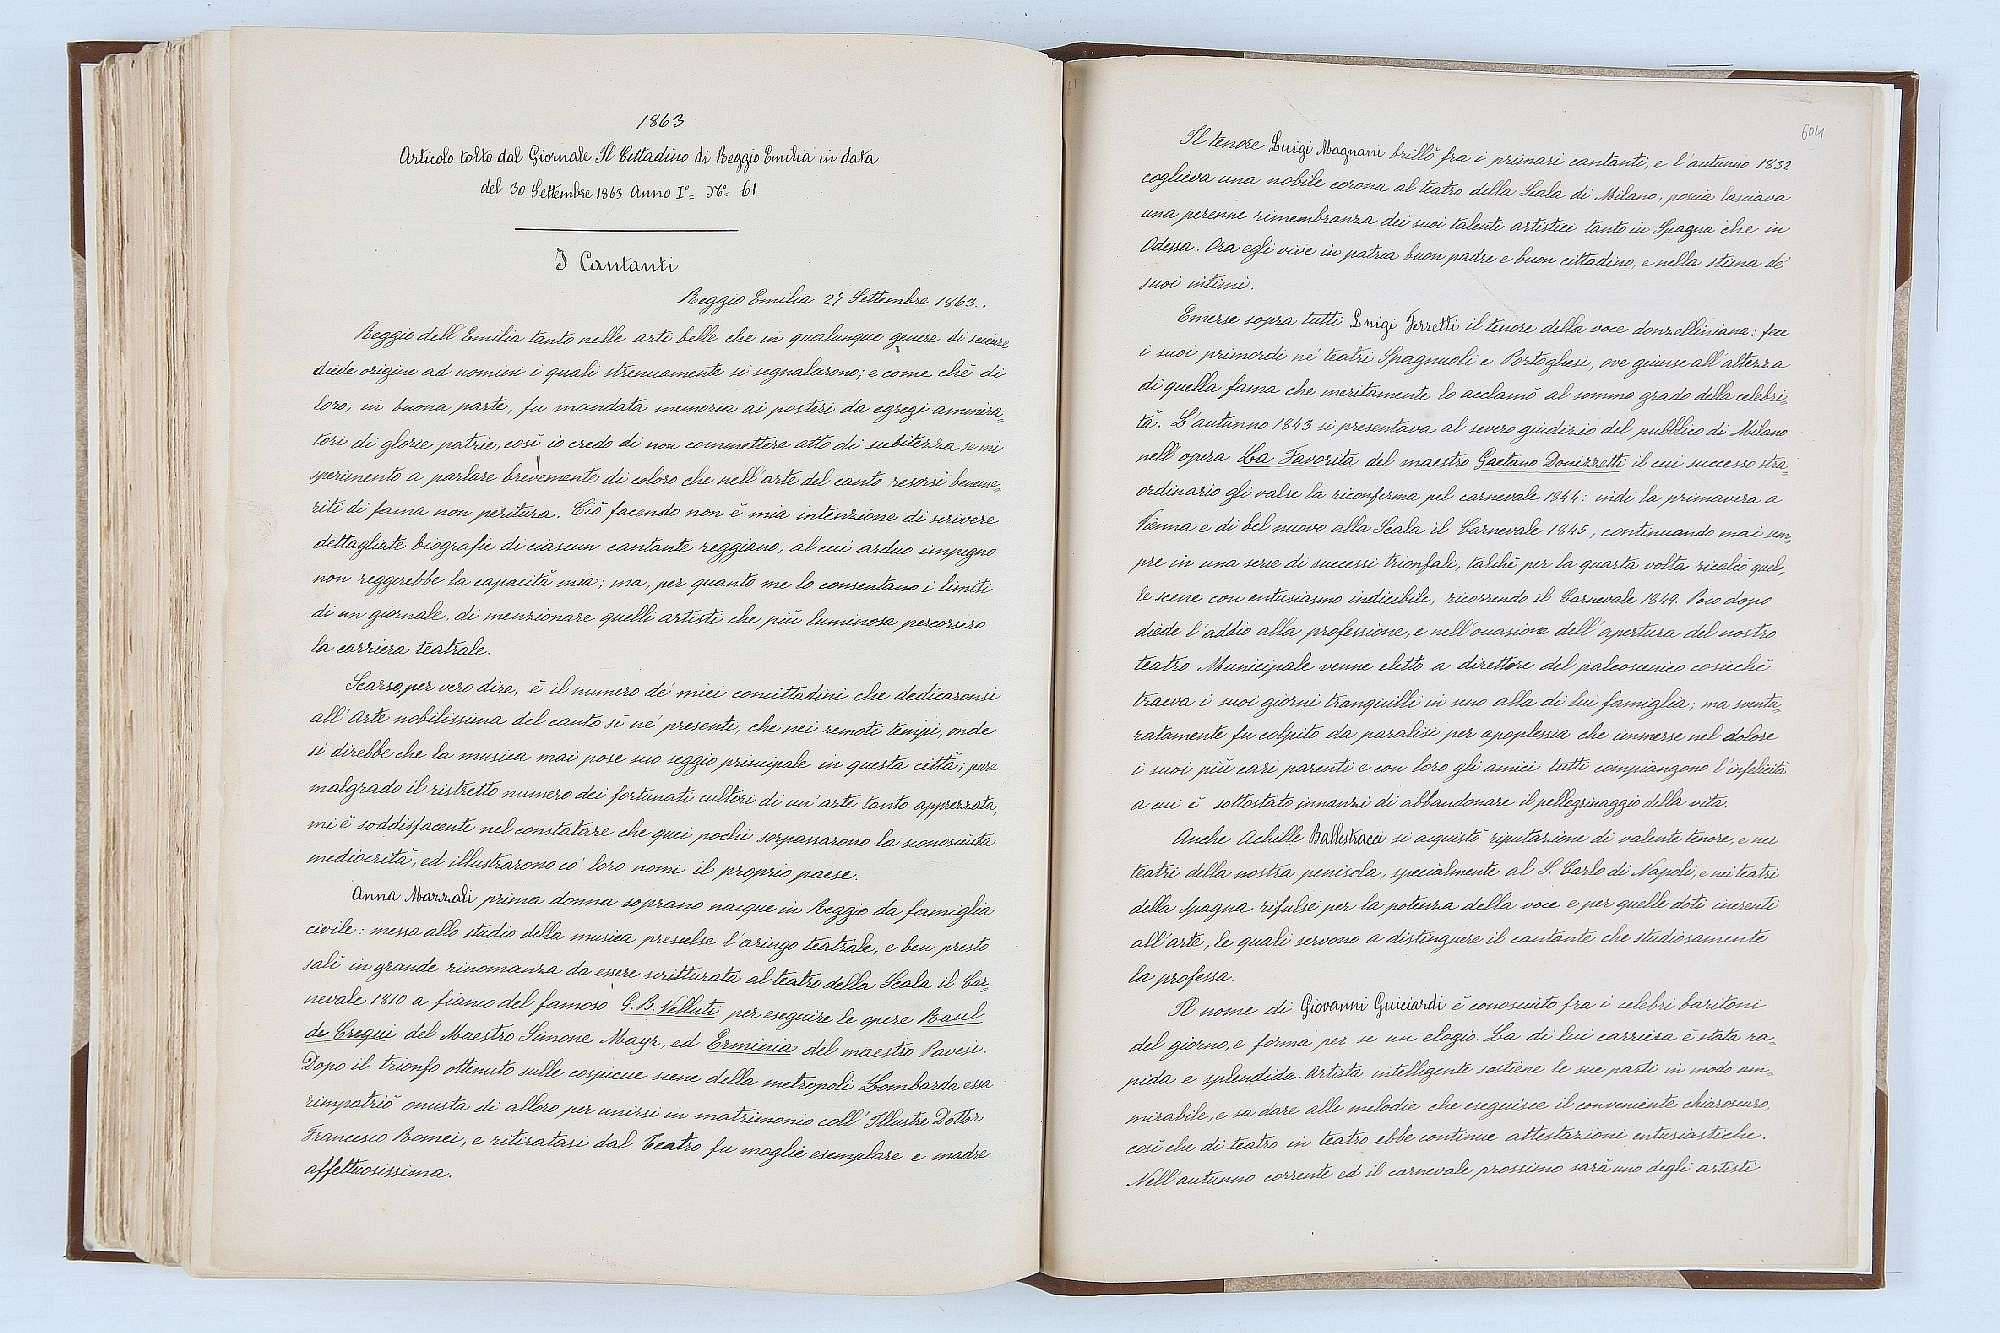 1863
Articolo tolto dal Giornale Il Cittadino di Reggio Emilia in data
del 30 Settembre 1863 Anno I° = N° = 61
I Cantanti
Reggio Emilia 27 Settembre 1863.
Reggio dell'Emilia tanto nelle arti belle che in qualunque genere di scienze
diede origine ad uomini i quali strenuamente si segnalarono; e come chè di
loro, in buona parte, fu mandata memoria ai posteri da egregi ammira-
tori di glorie patrie, così io credo di non commettere atto di subitezza se mi
sperimento a parlare brevemente di coloro che nell'arte del canto resersi beneme-
riti di fama non peritura. Ciò facendo non è mia intenzione di scrivere
dettagliate biografie di ciascun cantante reggiano, al cui arduo impegno
non reggerebbe la capacità mia; ma, per quanto me lo consentano i limiti
di un giornale, di menzionare quelli artisti che più luminosa percorsero
la carriera teatrale.
Scarso, per vero dire, è il numero de' miei concittadini che dedicaronsi
all'Arte nobilissima del canto sì ne' presenti, che nei remoti tempi, onde
si direbbe che la musica mai pose suo seggio principale in questa città; pure
malgrado il ristretto numero dei fortunati cultori di un'arte tanto apprezzata,
mi è soddisfacente nel constatare che quei pochi sorpassarono la sconosciuta
mediocrità, ed illustrarono co' loro nomi il proprio paese.
Anna Marzali, prima donna soprano nacque in Reggio da famiglia
civile: messa allo studio della musica prescelse l'aringo teatrale, e ben presto
salì in grande rinomanza da essere scritturata al teatro della Scala il Car-
nevale 1810 a fianco del famoso G. B. Velluti per eseguire le opere Raul
de Crequi del Maestro Simone Mayr, ed Erminia del maestro Pavesi.
Dopo il trionfo ottenuto sulle cospicue scene della metropoli Lombarda essa
rimpatriò onusta di alloro per unirsi in matrimonio coll'Illustre Dottor
Francesco Romei, e ritiratasi dal Teatro fu moglie esemplare e madre
affettuosissima.
604
Il tenore Luigi Magnani brillò fra i primari cantanti, e l'autunno 1832
coglieva una nobile corona al teatro della Scala di Milano, poscia lasciava
una perenne rimembranza dei suoi talenti artistici tanto in Spagna che in
Odessa. Ora egli vive in patria buon padre e buon cittadino, e nella stima de'
suoi intimi.
Emerse sopra tutti Luigi Ferretti il tenore della voce donzelliniana: fece
i suoi primordi ne' teatri Spagnuoli e Portoghesi, ove giunse all'altezza
di quella fama che meritamente lo acclamò al sommo grado della celebri-
tà. L'autunno 1843 si presentava al severo giudizio del pubblico di Milano
nell'opera La Favorita del maestro Gaetano Donizzetti il cui successo stra-
ordinario gli valse la riconferma pel carnevale 1844: indi la primavera a
Vienna e di bel nuovo alla Scala il Carnevale 1845, continuando mai sem-
pre in una serie di successi trionfali, talchè per la quarta volta ricalcò quel-
le scene con entusiasmo indicibile, ricorrendo il Carnevale 1849. Poco dopo
diede l'addio alla professione, e nell'occasione dell'apertura del nostro
teatro Municipale venne eletto a direttore del palcoscenico cosicchè
traeva i suoi giorni tranquilli in seno alla di lui famiglia; ma sventu-
ratamente fu colpito da paralisi per apoplessia che immerse nel dolore
i suoi più cari parenti e con loro gli amici tutti compiangono l'infelicità
a cui è sottostato innanzi di abbandonare il pellegrinaggio della vita.
Anche Achille Ballestracci si acquistò riputazione di valente tenore, e nei
teatri della nostra penisola, specialmente al S. Carlo di Napoli, e nei teatri
della Spagna rifulse per la potenza della voce e per quelle doti inerenti
all'arte, le quali servono a distinguere il cantante che studiosamente
la professa.
Il nome di Giovanni Guicciardi è conosciuto fra i celebri baritoni
del giorno, e forma per se un elogio. La di lui carriera è stata ra-
pida e splendida. Artista intelligente sostiene le sue parti in modo am-
mirabile, e sa dare alle melodie che eseguisce il conveniente chiaroscuro,
così che di teatro in teatro ebbe continue attestazioni entusiastiche.
Nell'autunno corrente ed il carnevale prossimo sarà uno degli artisti